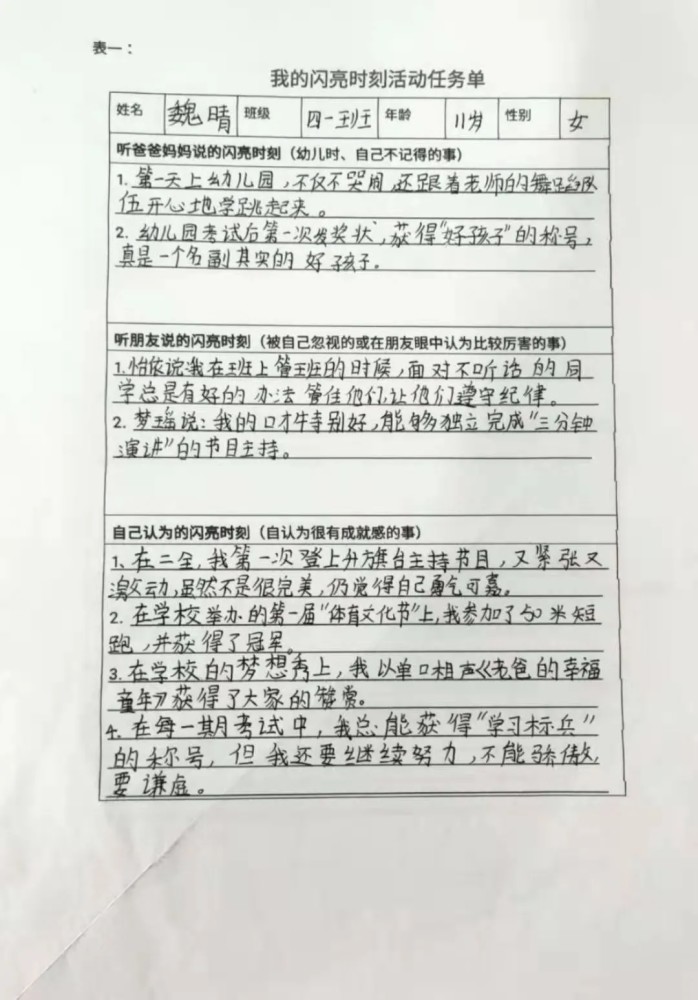 表一：
我的闪亮时刻活动任务单
姓名 魏晴 班级 四一班 年龄 11岁 性别 女
听爸爸妈妈说的闪亮时刻（幼儿时、自己不记得的事）
1. 第一天上幼儿园，不仅不哭闹，还跟着老师的舞蹈队
伍开心地学跳起来。
2. 幼儿园考试后第一次发奖状，获得“好孩子”的称号，
真是一个名副其实的好孩子。
听朋友说的闪亮时刻（被自己忽视的或在朋友眼中认为比较厉害的事）
1.怡依说:我在班上管班的时候，面对不听话的同
学总是有好的办法管住他们,让他们遵守纪律。
2. 梦瑶说：我的口才特别好，能够独立完成“三分钟
演讲”的节目主持。
自己认为的闪亮时刻（自认为很有成就感的事）
1、在二全，我第一次登上升旗台主持节目，又紧张又
激动，虽然不是很完美，仍觉得自己勇气可嘉。
2. 在学校举办的第一届“体育文化节”上，我参加了50米短
跑，并获得了冠军。
3. 在学校的梦想秀上，我以单口相声《老爸的幸福
童年》获得了大家的赞赏。
4. 在每一期考试中，我总能获得“学习标兵”
的称号，但我还要继续努力，不能骄傲，
要谦虚。